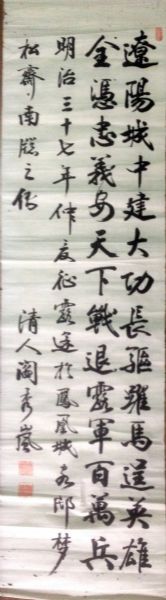 遼陽城中建大功長驅驊馬逞英雄
全憑忠義安天下戰退露軍百萬兵
明治三十七年仲夏征露途於鳳凰城客邸梦
松齋南牕之傍
清人閻秀嵐